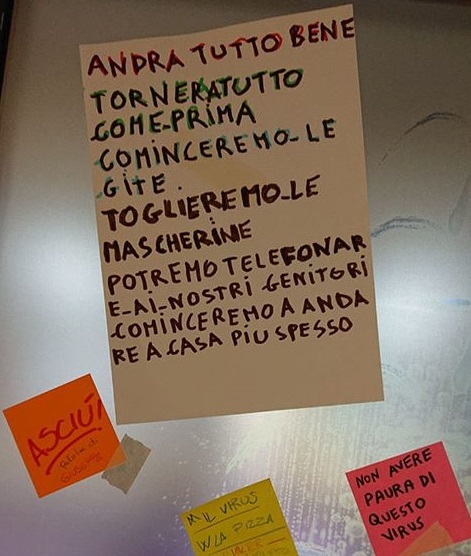 ANDRA TUTTO BENE
TORNERA TUTTO
COME-PRIMA
COMINCEREMO-LE
GITE.
TOGLIEREMO-LE
MASCHERINE
POTREMO TELEFONAR
E-AI-NOSTRI GENITORI
COMINCEREMO A ANDA
RE A CASA PIU SPESSO
ASCIUÌ
M IL VIRUS
W LA PIZZA
NON AVERE
PAURA DI
QUESTO
VIRUS